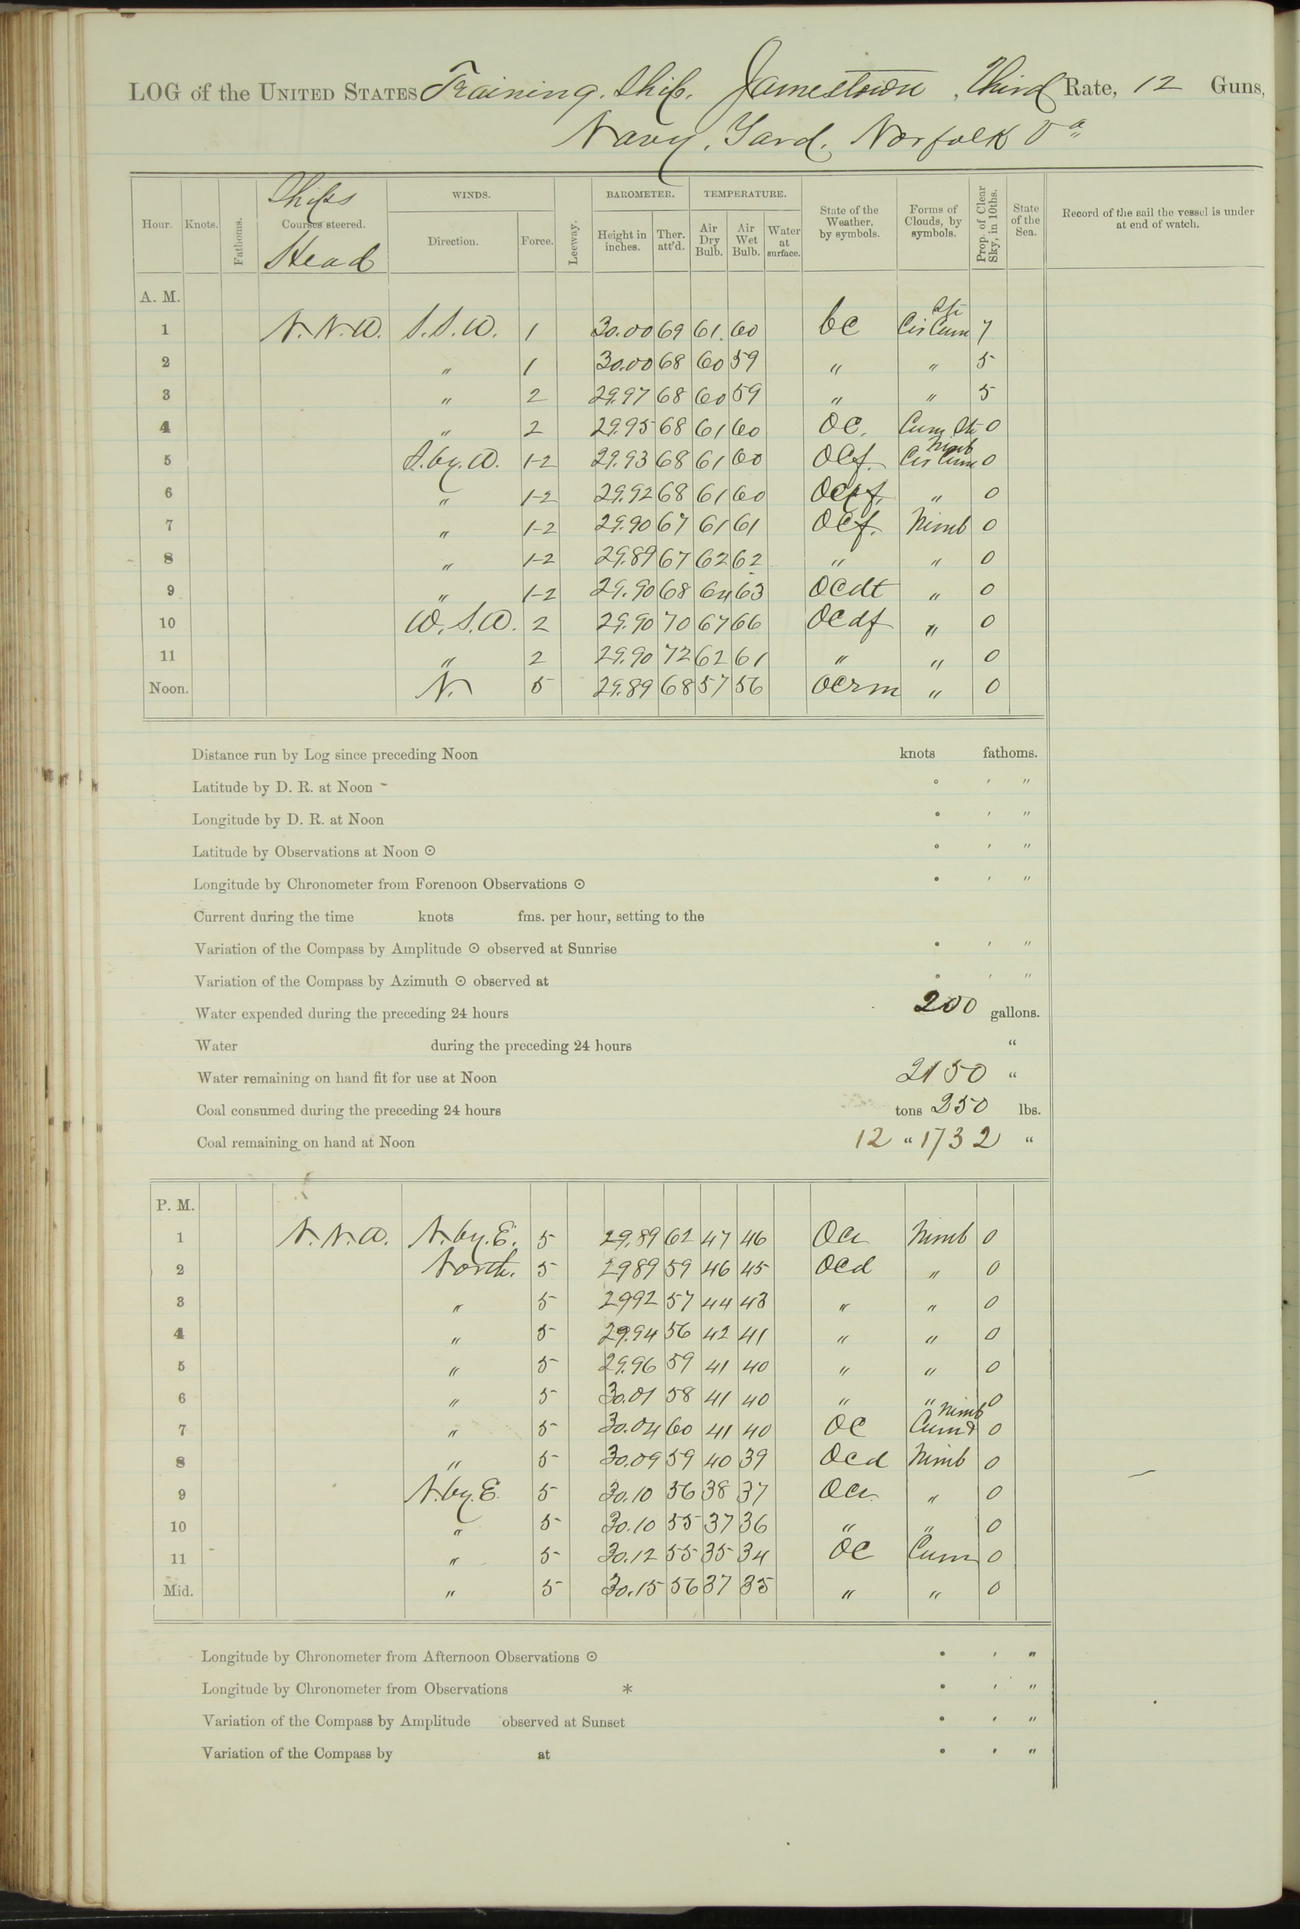 LOG of the UNITED STATES Training Ship Jamestown, Third Rate, 12 Guns,
Navy Yard, Norfolk Va
Hour. Knots. Fathoms. Ships Courses steered. Head WINDS. Direction. Force. Leeway. BAROMETER. Height in inches. Ther. att'd. TEMPERATURE. Air Dry Bulb. Air Wet Bulb. Water at surface. State of the Weather, by symbols. Forms of Clouds, by symbols. Prop. of Clear Sky, in 10ths. State of the Sea. Record of the sail the vessel is under at end of watch.
A. M.
1 N.N.W. S.S.W. 1 30.00 69 61 60 bc Cir Cum Str 7
2 " 1 30.00 68 60 59 " " 5
3 " 2 29.97 68 60 59 " " 5
4 " 2 29.95 68 61 60 oc. Cum Str 0
5 S.by.W. 1-2 29.93 68 61 60 ocf. Cir Cum Nimb 0
6 " 1-2 29.92 68 61 60 " 0
7 " 1-2 29.90 67 61 61 ocf. Nimb 0
8 " 1-2 29.89 67 62 62 " " 0
9 " 1-2 29.90 68 64 63 ocdt " 0
10 W.S.W. 2 29.90 70 67 66 ocdf " 0
11 " 2 29.90 72 62 61 " " 0
Noon. N. 5 29.89 68 57 56 ocrm " 0
Distance run by Log since preceding Noon knots fathoms.
Latitude by D. R. at Noon ° ' "
Longitude by D. R. at Noon ° ' "
Latitude by Observations at Noon ☉ ° ' "
Longitude by Chronometer from Forenoon Observations ☉ ° ' "
Current during the time knots fms. per hour, setting to the
Variation of the Compass by Amplitude ☉ observed at Sunrise ° ' "
Variation of the Compass by Azimuth ☉ observed at ° ' "
Water expended during the preceding 24 hours 200 gallons.
Water during the preceding 24 hours "
Water remaining on hand fit for use at Noon 2150 "
Coal consumed during the preceding 24 hours tons 250 lbs.
Coal remaining on hand at Noon 12 " 1732 "
P. M.
1 N.N.W. N.by.E. 5 29.89 62 47 46 Nimb 0
2 North. 5 2989 59 46 45 ocd " 0
3 " 5 2992 57 44 43 " " 0
4 " 5 29.94 56 42 41 " " 0
5 " 5 29.96 59 41 40 " " 0
6 " 5 30.01 58 41 40 " " 0
7 " 5 30.04 60 41 40 oc Cum & Nimb 0
8 " 5 30.09 59 40 39 ocd Nimb 0
9 N.by.E 5 30.10 56 38 37 " 0
10 " 5 30.10 55 37 36 " " 0
11 " 5 30.12 55 35 34 oc Cum 0
Mid. " 5 30.15 56 37 35 " " 0
Longitude by Chronometer from Afternoon Observations ☉ ° ' "
Longitude by Chronometer from Observations * ° ' "
Variation of the Compass by Amplitude observed at Sunset ° ' "
Variation of the Compass by at ° ' "